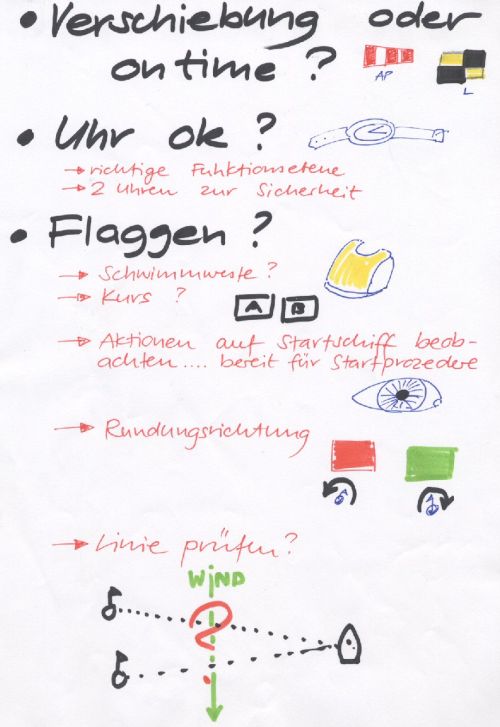 • Verschiebung oder
ontime?
AP
L
• Uhr ok?
→ richtige Funktionsebene
→ 2 Uhren zur Sicherheit
• Flaggen?
→ Schwimmweste?
→ Kurs ?
A B
→ Aktionen auf Startschiff beob-
achten.... bereit für Startprozedere
→ Rundungsrichtung
→ Linie prüfen?
WiND
?